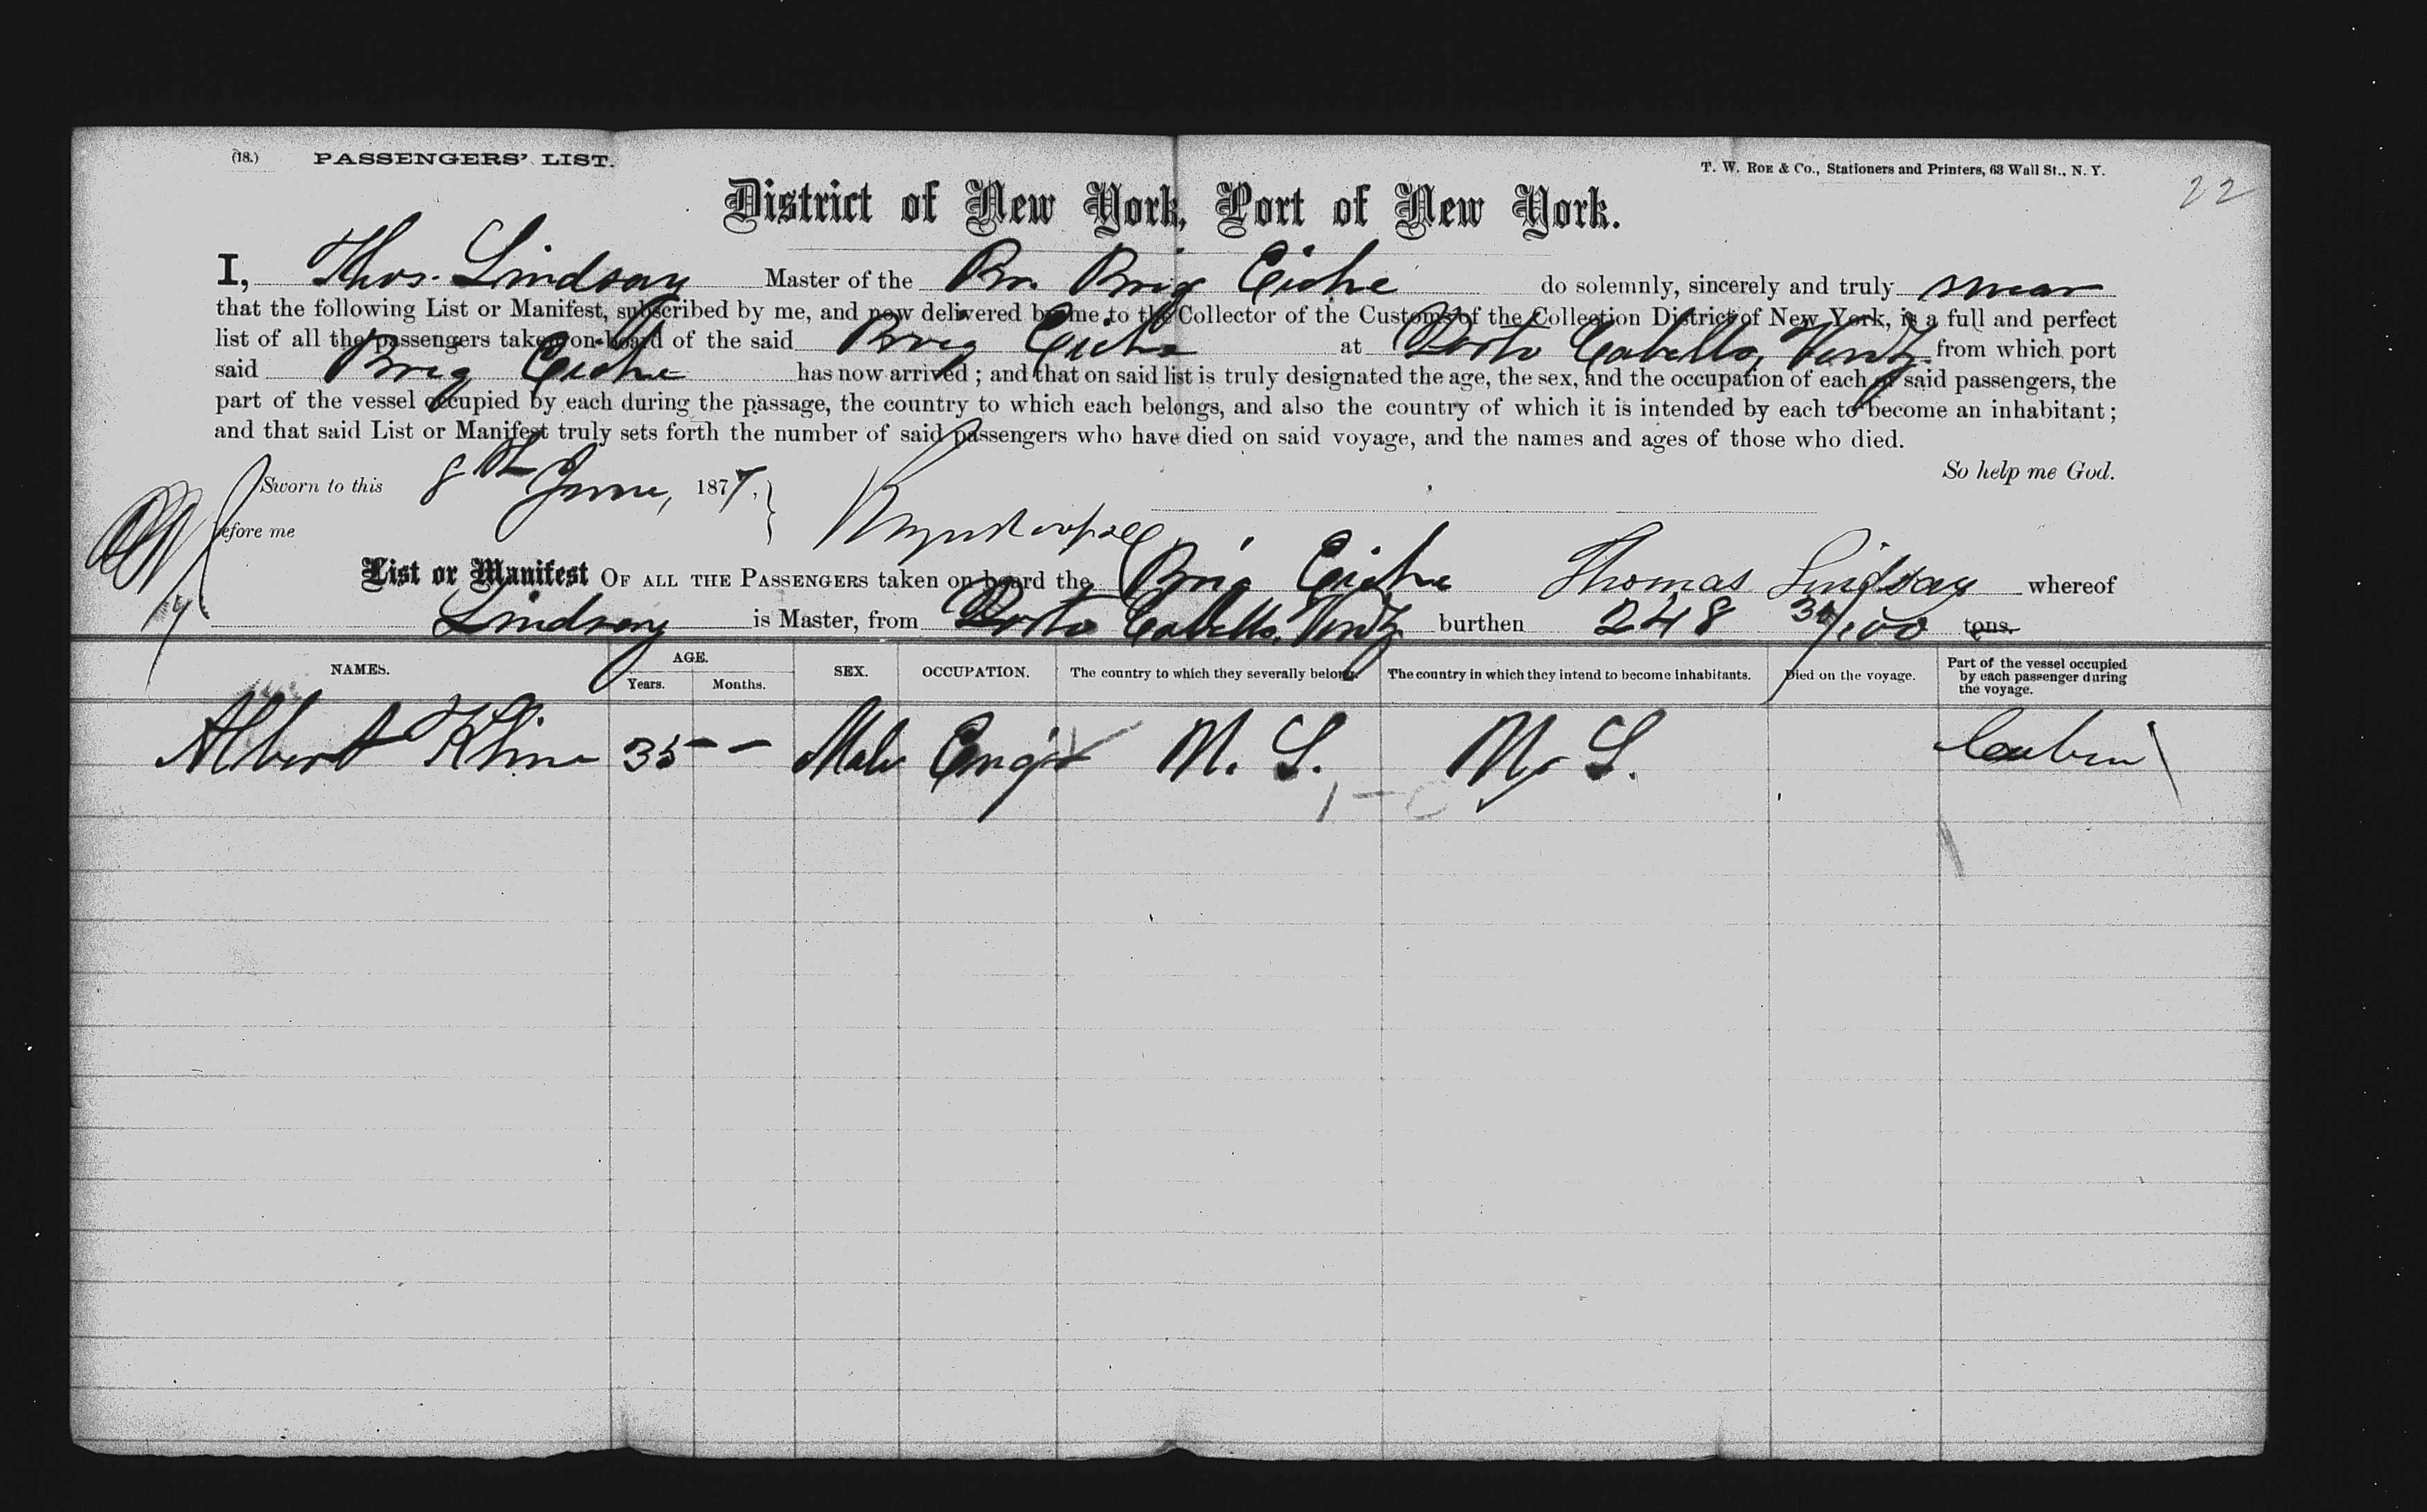 (18.) PASSENGERS' LIST. T. W. ROE & Co., Stationers and Printers, 63 Wall St., N. Y.
22
District of New York, Port of New York.
I, Thos. Lindsay Master of the Br. Brig do solemnly, sincerely and truly swear
that the following List or Manifest, subscribed by me, and now delivered by me to the Collector of the Customs of the Collection District of New York, is a full and perfect
list of all the passengers taken on board of the said Brig at Porto Cabello, from which port
said Brig has now arrived ; and that on said list is truly designated the age, the sex, and the occupation of each of said passengers, the
part of the vessel occupied by each during the passage, the country to which each belongs, and also the country of which it is intended by each to become an inhabitant ;
and that said List or Manifest truly sets forth the number of said passengers who have died on said voyage, and the names and ages of those who died.
So help me God.
Sworn to this 8th June, 1877,
Before me
List or Manifest OF ALL THE PASSENGERS taken on board the Brig Thomas Lindsay whereof
Lindsay is Master, from Porto Cabello, burthen 248 /100 tons.
NAMES. AGE. Years. Months. SEX. OCCUPATION. The country to which they severally belong. The country in which they intend to become inhabitants. Died on the voyage. Part of the vessel occupied by each passenger during the voyage.
Albert Kline 35 - - Male Eng'r U. S. U. S. Cabin